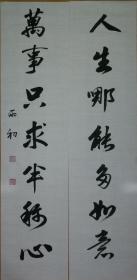 人生哪能多如意
萬事只求半稱心